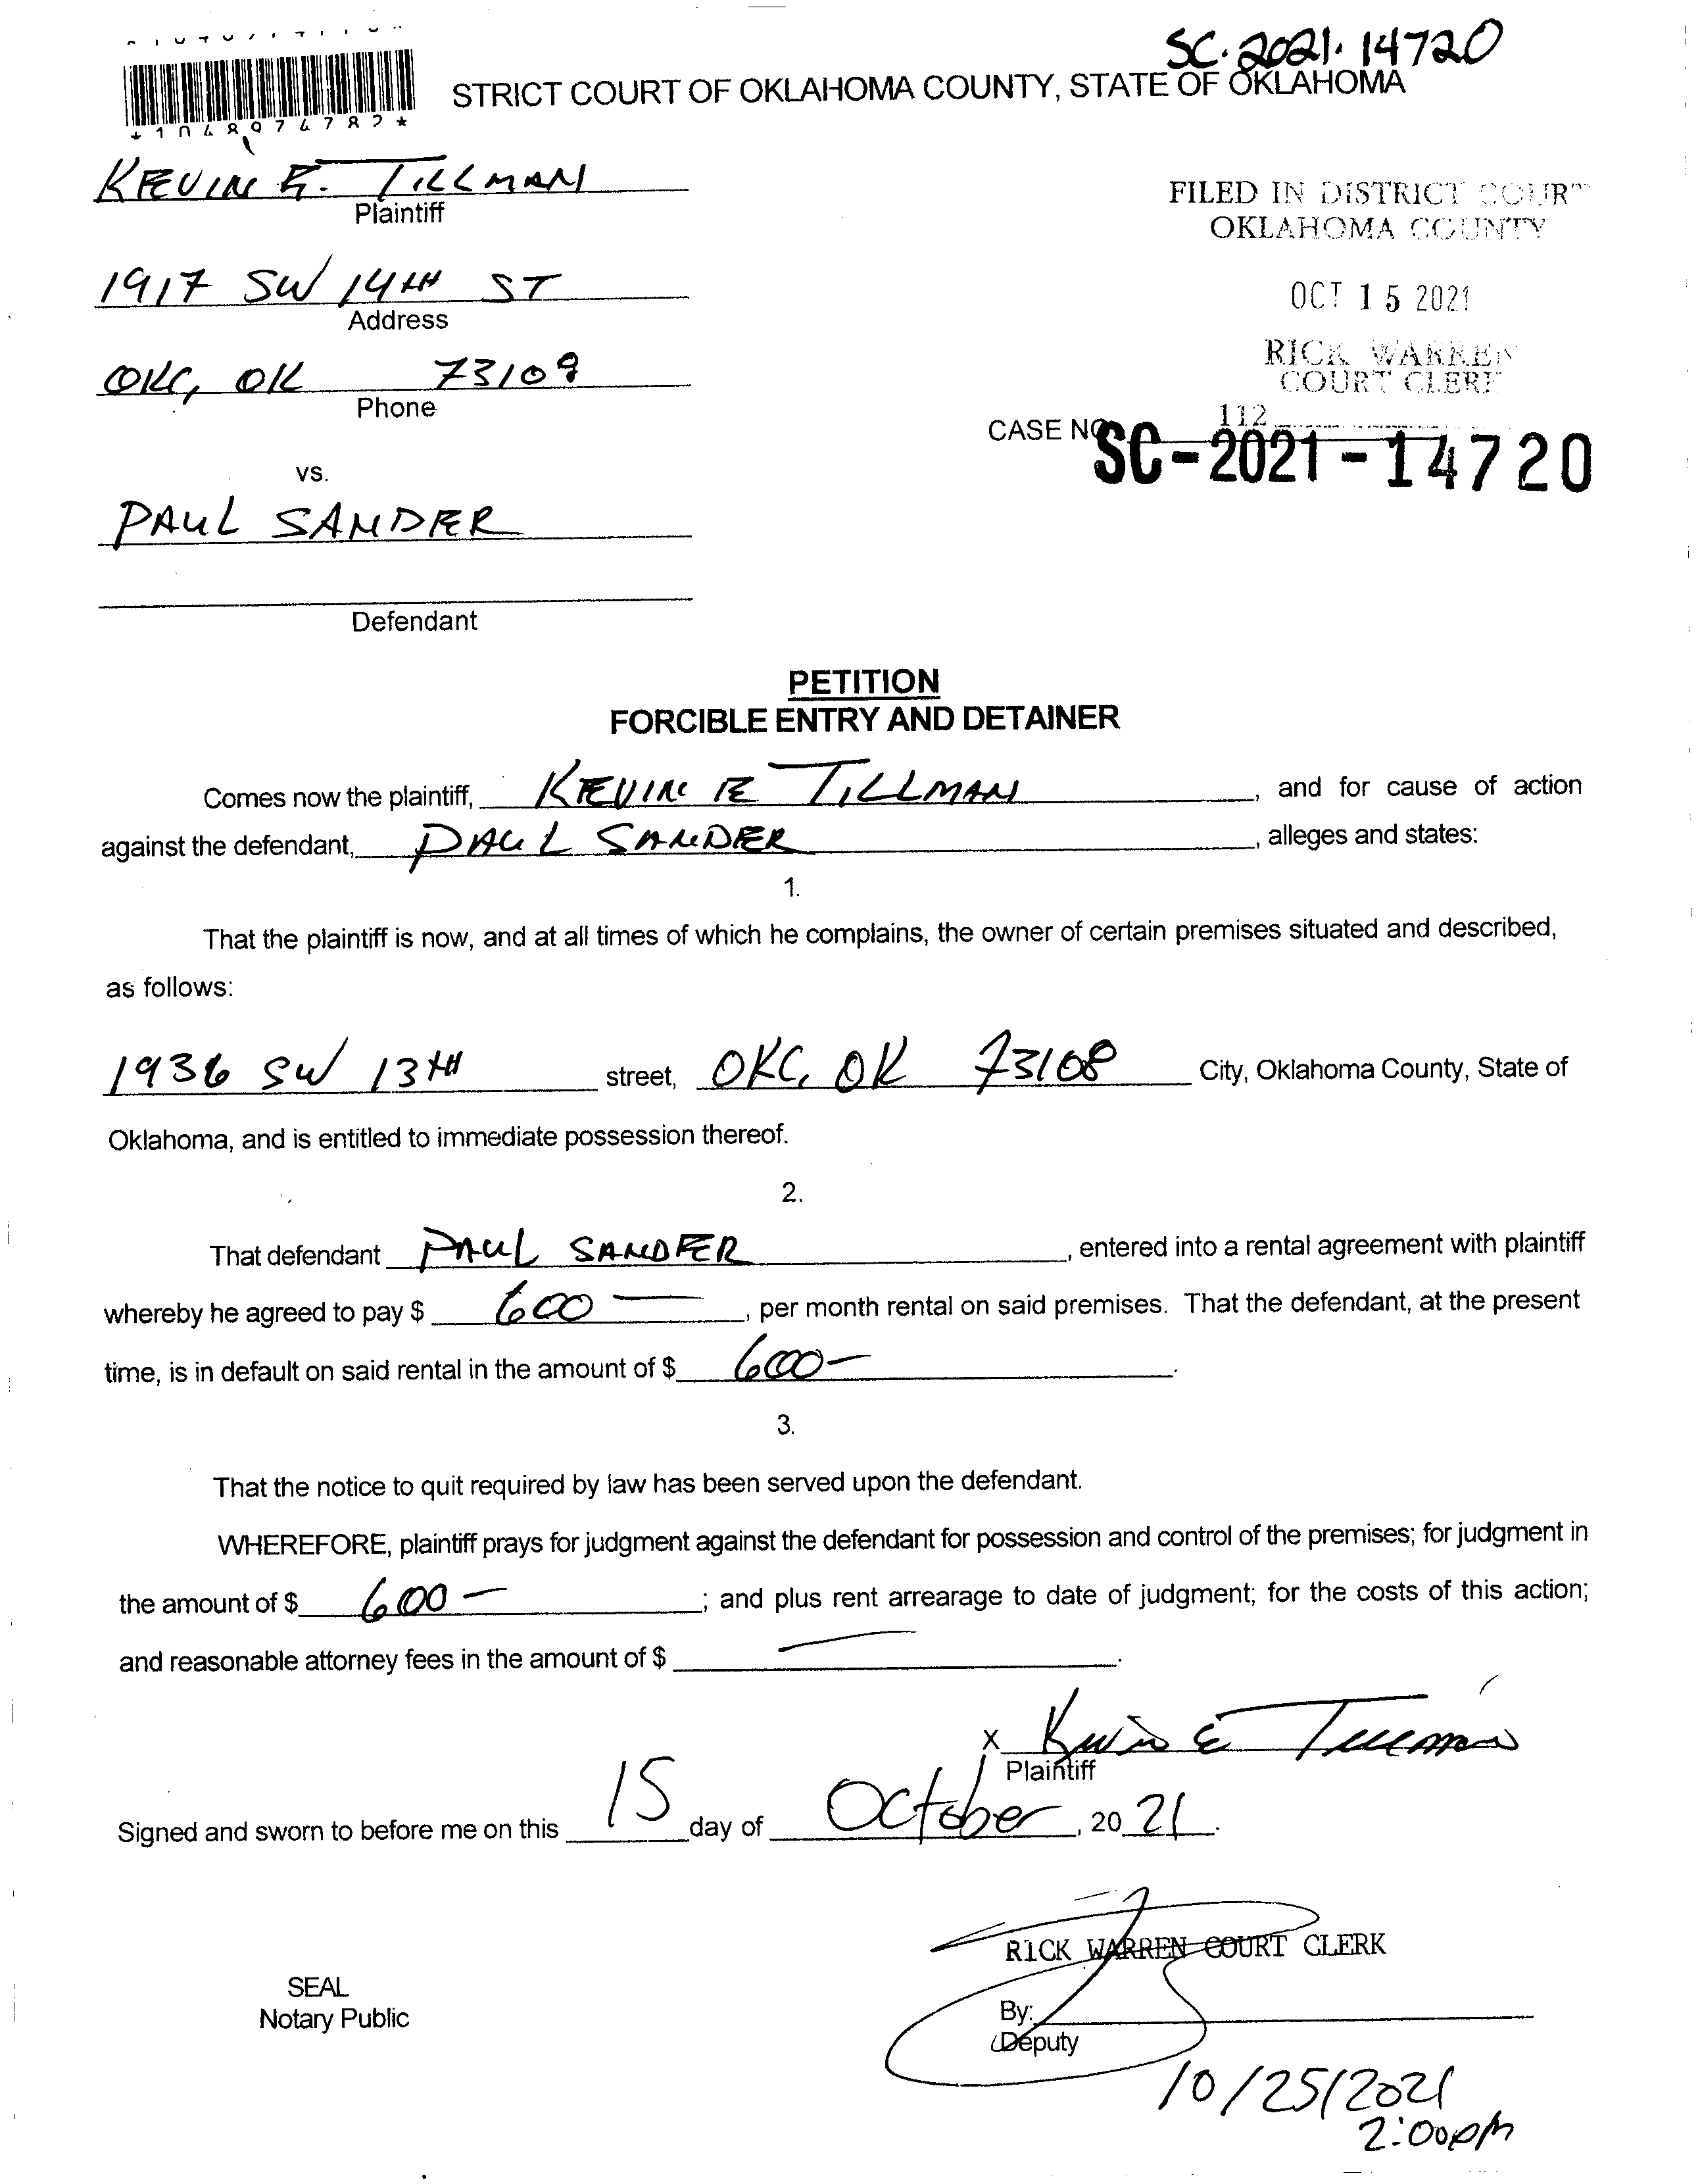 SC-2021-14720
STRICT COURT OF OKLAHOMA COUNTY, STATE OF OKLAHOMA
*1048974782*
KEVIN E. TILLMAN
Plaintiff
FILED IN DISTRICT COURT
OKLAHOMA COUNTY
1917 SW 14TH ST
Address
OCT 15 2021
RICK WARREN
COURT CLERK
OKC, OK 73108
Phone
112
CASE NO
SC-2021-14720
vs.
PAUL SANDER
Defendant
PETITION
FORCIBLE ENTRY AND DETAINER
Comes now the plaintiff, KEVIN E TILLMAN, and for cause of action
against the defendant, PAUL SANDER, alleges and states:
1.
That the plaintiff is now, and at all times of which he complains, the owner of certain premises situated and described,
as follows:
1936 SW 13TH street, OKC, OK 73108 City, Oklahoma County, State of
Oklahoma, and is entitled to immediate possession thereof.
2.
That defendant PAUL SANDER, entered into a rental agreement with plaintiff
whereby he agreed to pay $ 600 —, per month rental on said premises. That the defendant, at the present
time, is in default on said rental in the amount of $ 600 —.
3.
That the notice to quit required by law has been served upon the defendant.
WHEREFORE, plaintiff prays for judgment against the defendant for possession and control of the premises; for judgment in
the amount of $ 600 —; and plus rent arrearage to date of judgment; for the costs of this action;
and reasonable attorney fees in the amount of $ —.
X Kevin E Tillman
Plaintiff
Signed and sworn to before me on this 15 day of October, 2021.
RICK WARREN COURT CLERK
SEAL
Notary Public
By:
Deputy
10/25/2021
2:00pm